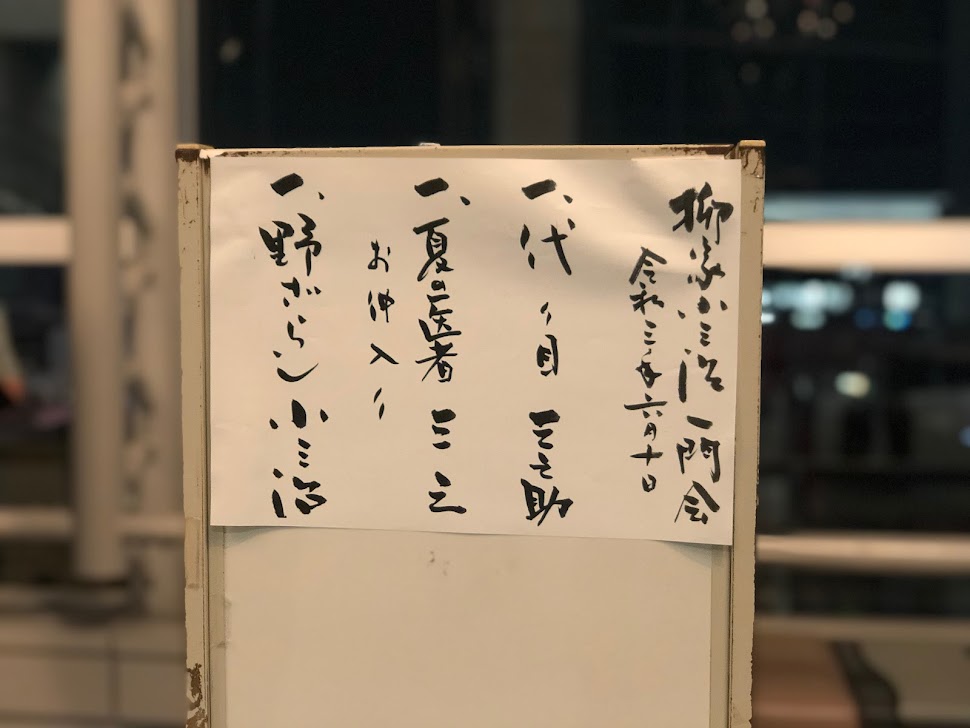 柳家小三治一門会
令和三年六月十日
一、代り目 三之助
一、夏の医者 三三
お仲入り
一、野ざらし 小三治